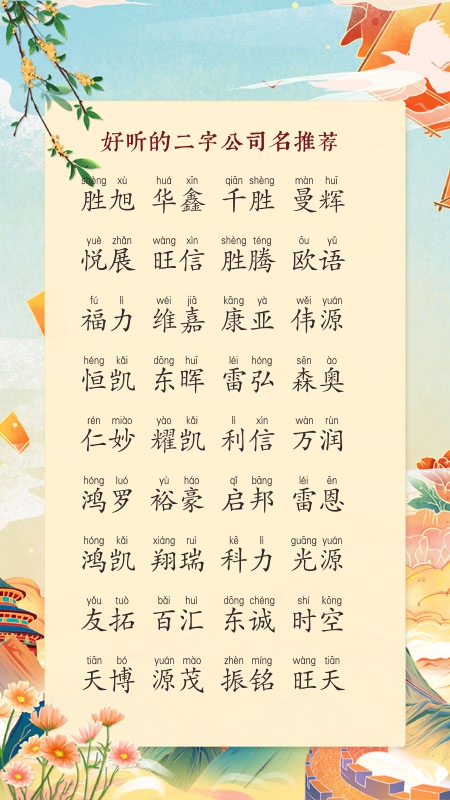 好听的二字公司名推荐
shèng xù huá xīn qiān shèng màn huī
胜旭 华鑫 千胜 曼辉
yuè zhǎn wàng xìn shèng téng ōu yǔ
悦展 旺信 胜腾 欧语
fú lì wéi jiā kāng yà wěi yuán
福力 维嘉 康亚 伟源
héng kǎi dōng huī léi hóng sēn ào
恒凯 东晖 雷弘 森奥
rén miào yào kǎi lì xìn wàn rùn
仁妙 耀凯 利信 万润
hóng luó yù háo qǐ bāng léi ēn
鸿罗 裕豪 启邦 雷恩
hóng kǎi xiáng ruì kē lì guāng yuán
鸿凯 翔瑞 科力 光源
yǒu tuò bǎi huì dōng chéng shí kōng
友拓 百汇 东诚 时空
tiān bó yuán mào zhèn míng wàng tiān
天博 源茂 振铭 旺天